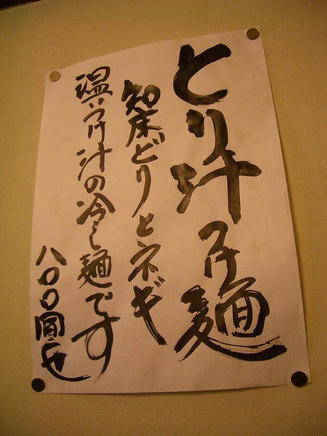 とり汁つけ麺
知床どりとネギ
温いつけ汁の冷し麺です
八〇〇圓也